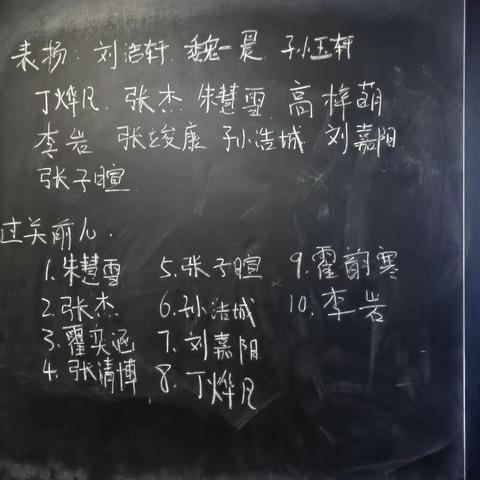 表扬：刘浩轩 魏一晨 孙玉轩
丁烨凡 张杰 朱慧雪 高梓萌
李岩 张竣康 孙浩城 刘嘉阳
张子暄
过关前几：
1.朱慧雪 5.张子暄 9.霍韵寒
2.张杰 6.孙浩城 10.李岩
3.霍奕涵 7.刘嘉阳
4.张清博 8.丁烨凡